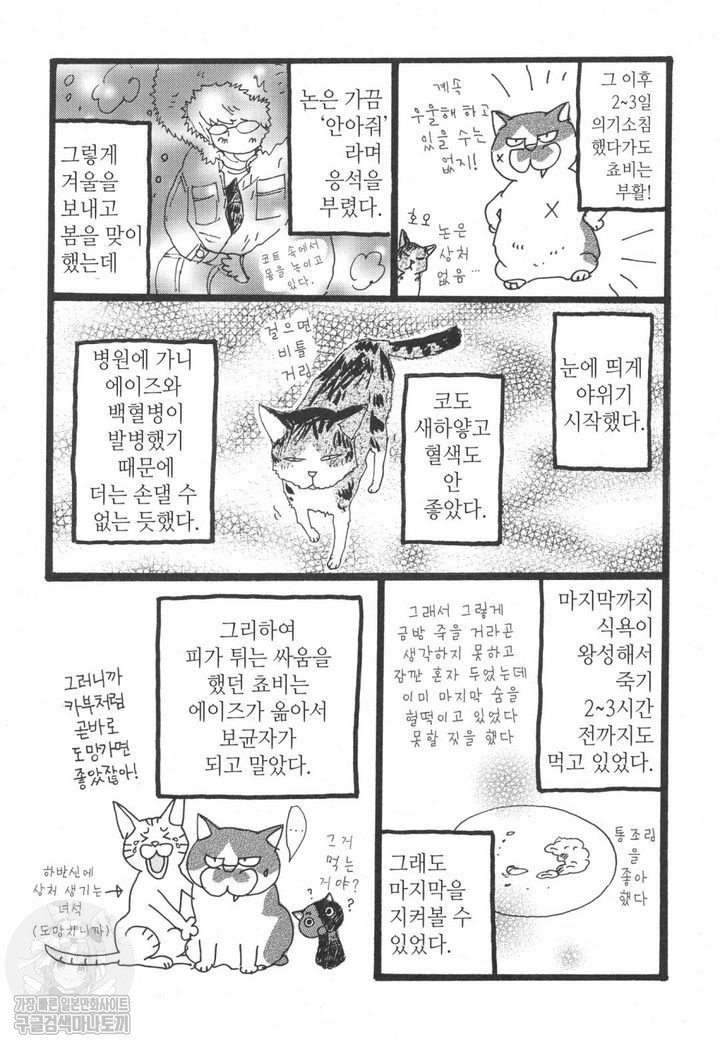 그 이후
2~3일
의기소침
했다가도
쵸비는
부활!
계속
우울해 하고
있을 수는
없지!
호오
논은
상처
없음…
논은 가끔
‘안아줘’
라며
응석을
부렸다.
코트 속에서
몸을 녹이고
있다.
그렇게
겨울을
보내고
봄을 맞이
했는데
눈에 띄게
야위기
시작했다.
코도
새하얗고
혈색도
안
좋았다.
걸으면
비틀
거려
병원에 가니
에이즈와
백혈병이
발병했기
때문에
더는 손댈 수
없는 듯했다.
마지막까지
식욕이
왕성해서
죽기
2~3시간
전까지도
먹고 있었다.
그래서 그렇게
금방 죽을 거라곤
생각하지 못하고
잠깐 혼자 두었는데
이미 마지막 숨을
헐떡이고 있었다
못할 짓을 했다
통조림
을
좋아
했다
그래도
마지막을
지켜볼 수
있었다.
그리하여
피가 튀는 싸움을
했던 쵸비는
에이즈가 옮아서
보균자가
되고 말았다.
그러니까
카부처럼
곧바로
도망가면
좋았잖아!
…
그거
먹는
거야?
? ?
하반신에
상처 생기는
녀석
(도망치니까)
가장 빠른 일본만화사이트
구글검색마나토끼